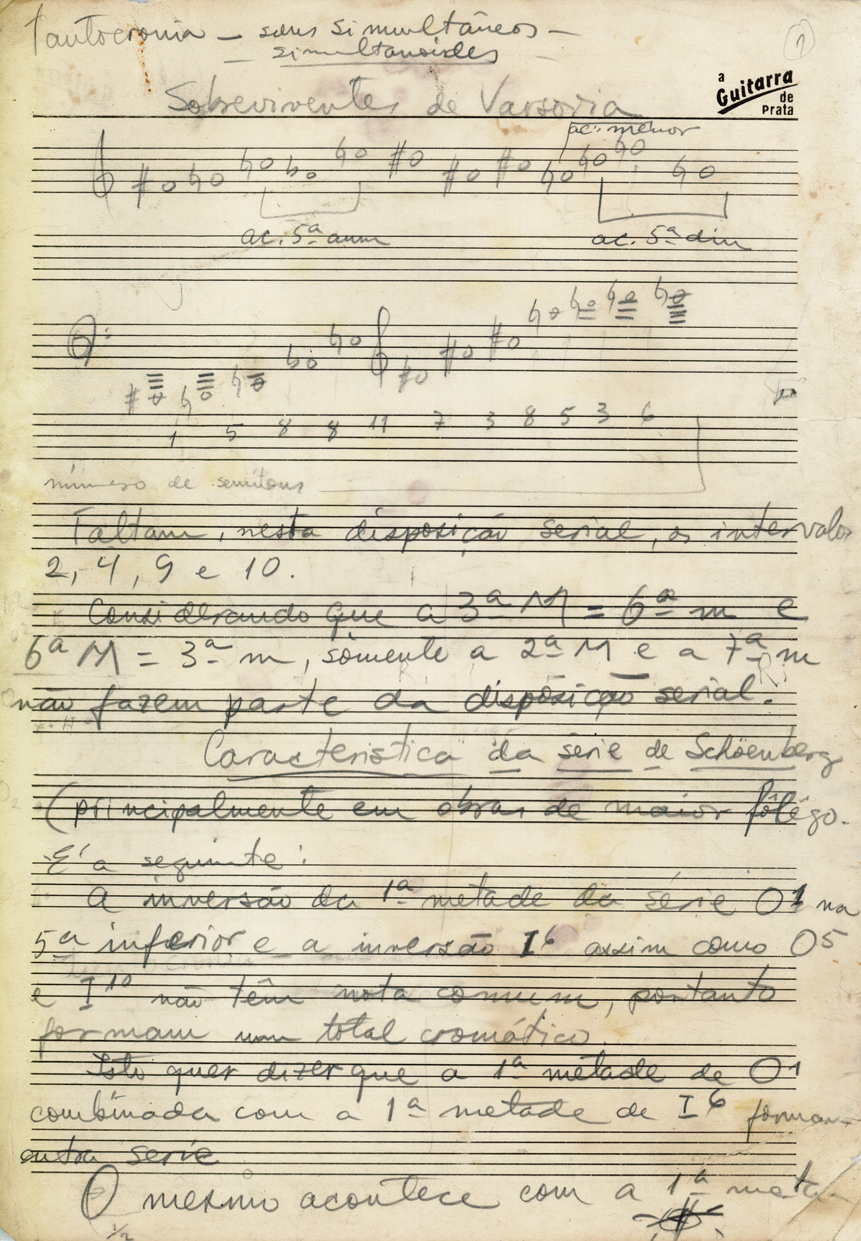 Tautocronia – sons simultâneos –
– simultanoides
1
a
Guitarra
de
Prata
Sobreviventes de Varsovia
ac. menor
ac. 5ª aum
ac. 5ª dim
1 5 8 8 11 7 3 8 5 3 6
número de semitons
Faltam, nesta disposição serial, os intervalos
2, 4, 9 e 10.
Considerando que a 3ª M = 6ª m e
6ª M = 3ª m, sòmente a 2ª M e a 7ª m
não fazem parte da disposição serial.
Caracteristica da serie de Schöenberg
(principalmente em obras de maior fôlêgo.
E' a seguinte:
A inversão da 1ª metade da série O1 na
5ª inferior e a inversão I6 assim como O5
e I10 não têm nota comum, portanto
formam um total cromático.
Isto quer dizer que a 1ª metade de O1
combinada com a 1ª metade de I6 formam
outra serie
O mesmo acontece com a 1ª meta-
1/2